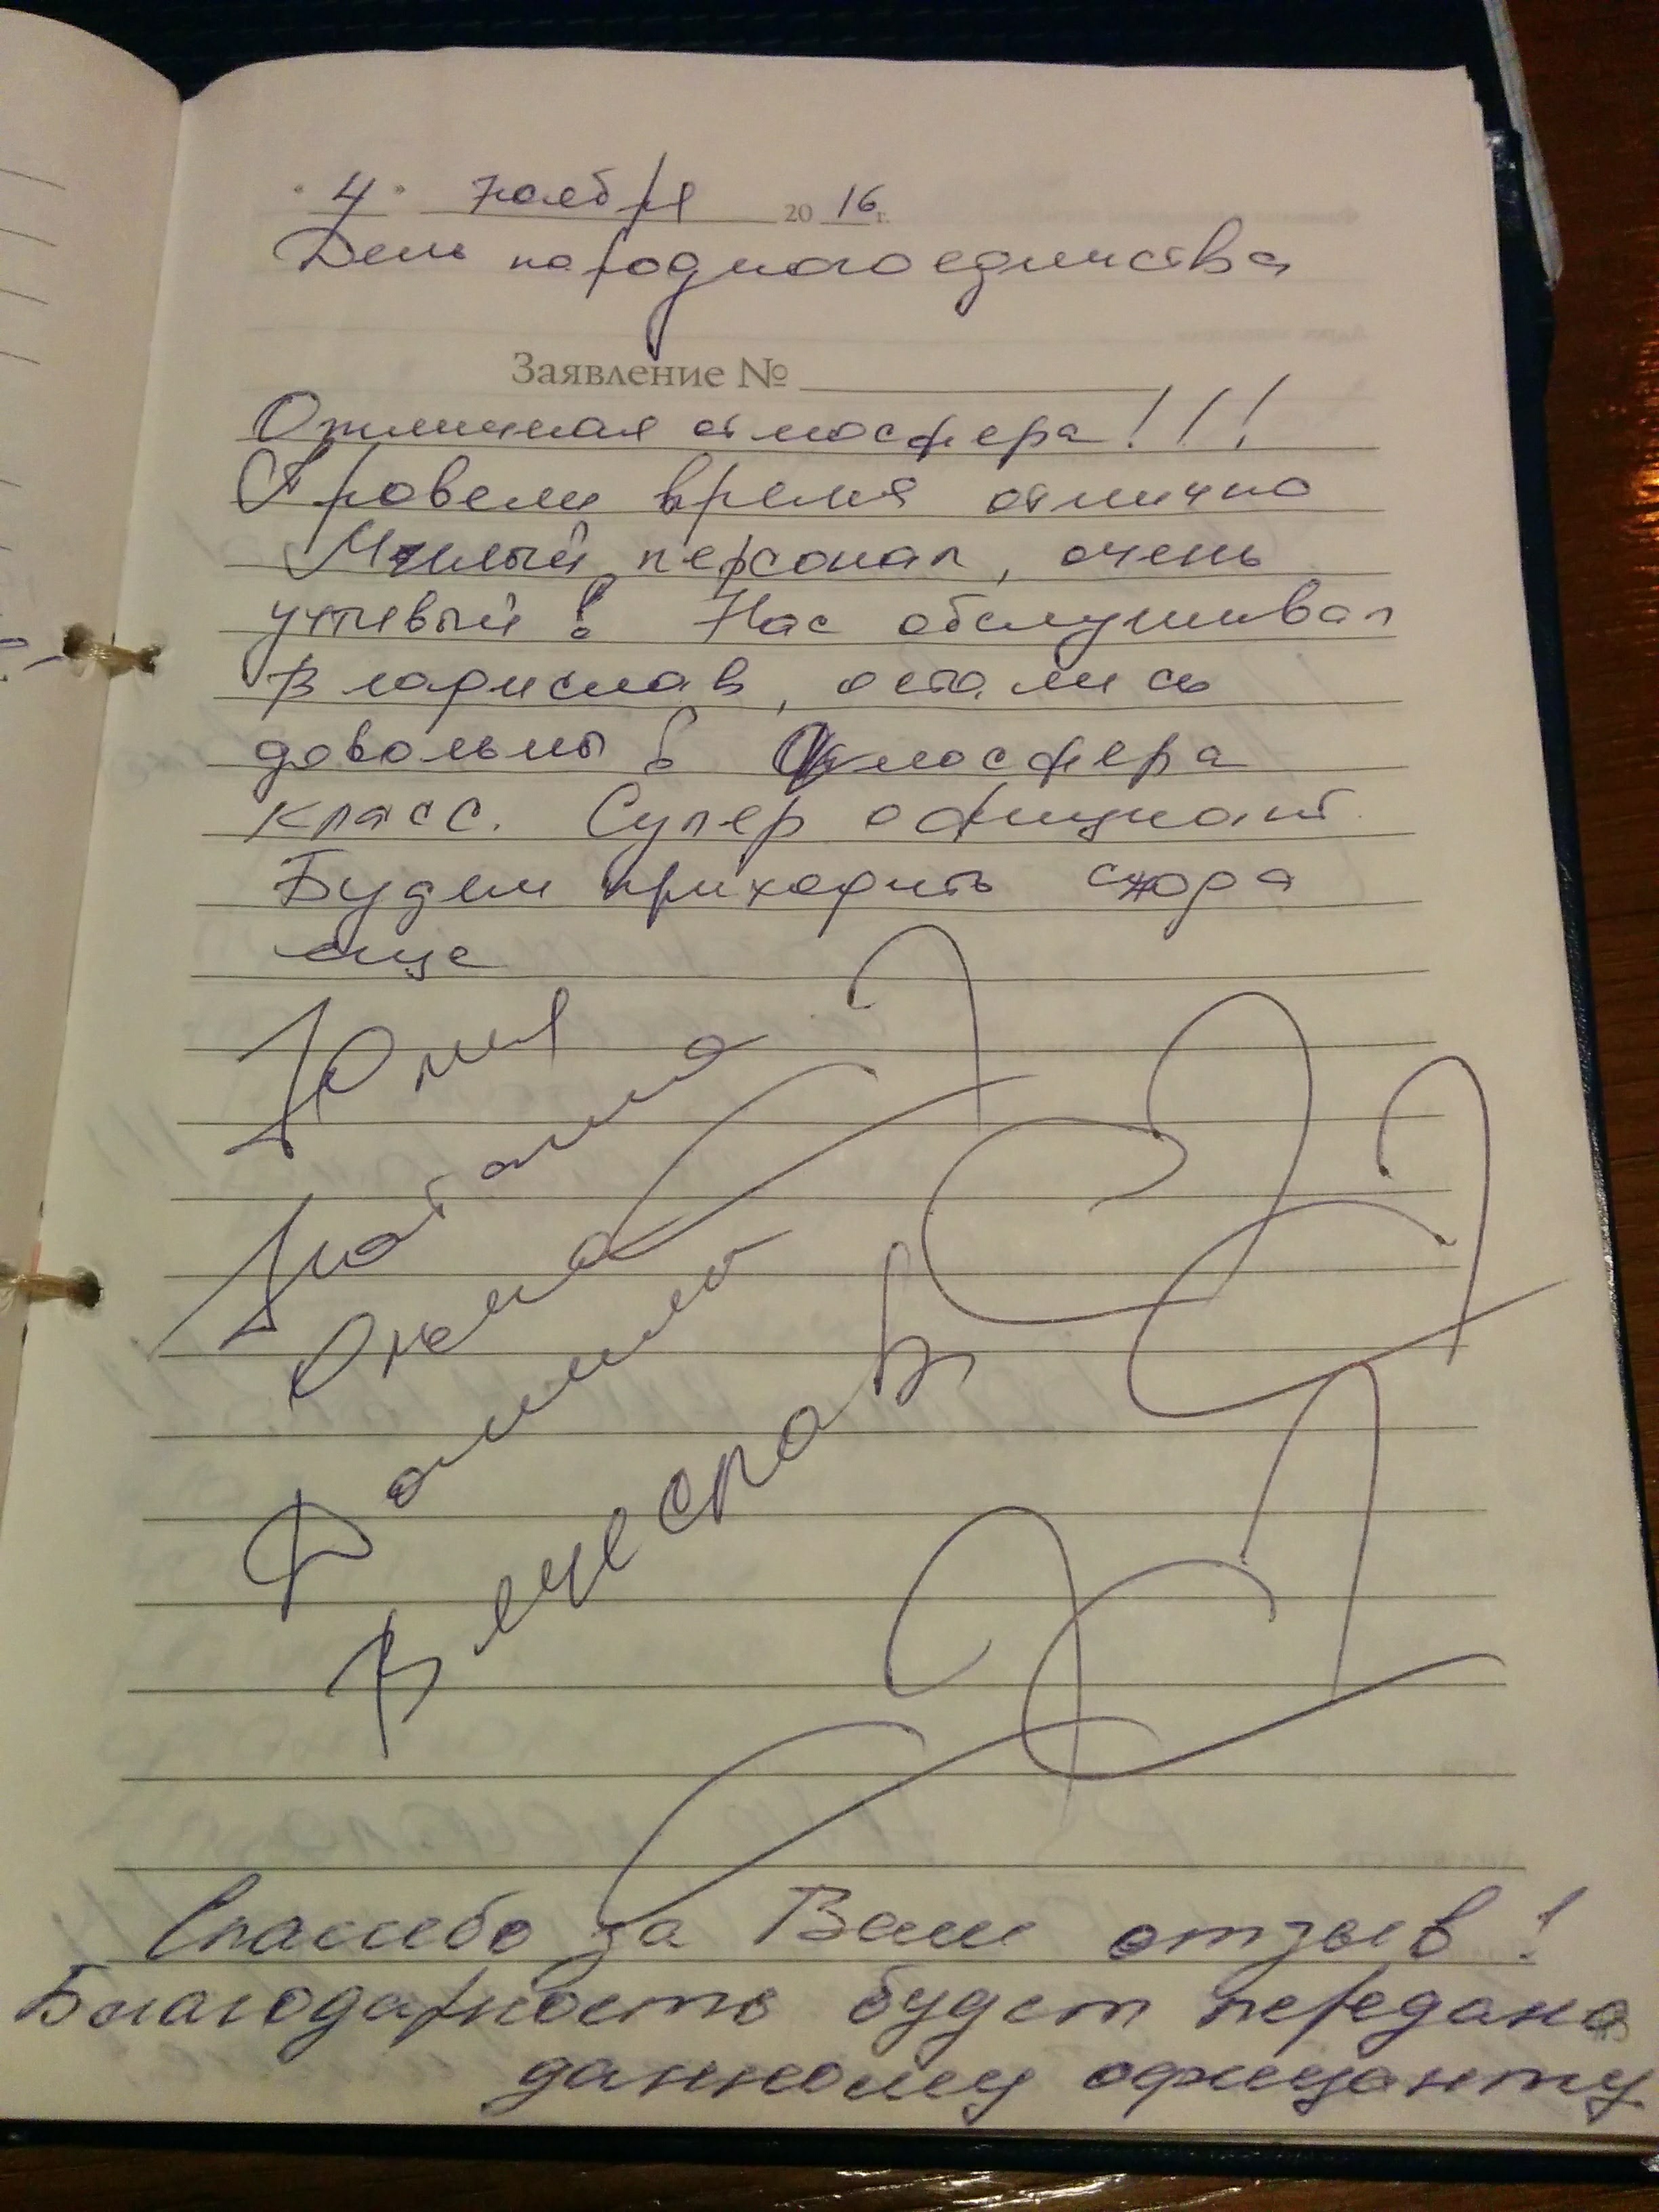 "4" ноября 2016 г.
День народного единства
Заявление №
Отличная атмосфера!!!
Провели время отлично
Милый персонал, очень
учтивый! Нас обслуживал
Владислав, остались
довольны! Атмосфера
класс. Супер официант.
Будем приходить скора
еще
Юлия
Наталия
Фаина
Вячеслав
Спасибо за Ваш отзыв!
Благодарность будет передана
данному официанту